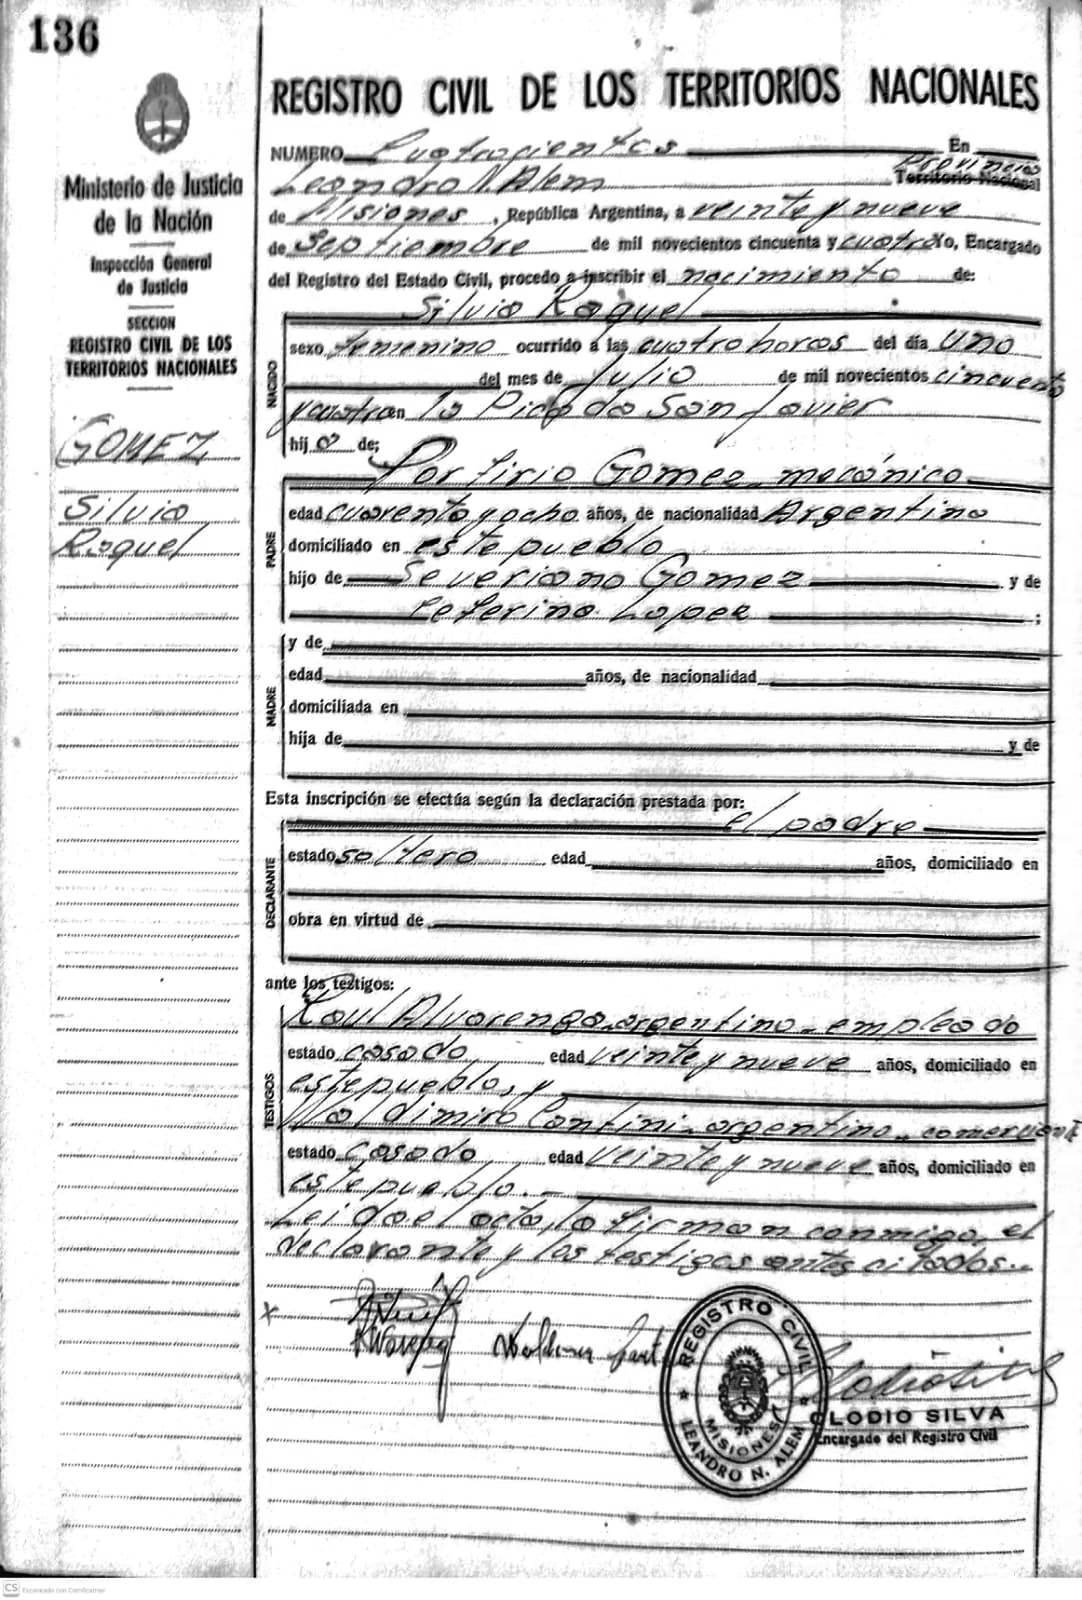 136
Ministerio de Justicia
de la Nación
Inspección General
de Justicia
SECCION
REGISTRO CIVIL DE LOS
TERRITORIOS NACIONALES
GOMEZ
Silvia
Raquel
REGISTRO CIVIL DE LOS TERRITORIOS NACIONALES
NUMERO Cuatrocientos En
Leandro N. Alem Provincia
Territorio Nacional
de Misiones, República Argentina, a veinte y nueve
de Septiembre de mil novecientos cincuenta y cuatro Yo, Encargado
del Registro del Estado Civil, procedo a inscribir el nacimiento de:
Silvia Raquel
NACIDO
sexo femenino ocurrido a las cuatro horas del día uno
del mes de Julio de mil novecientos cincuenta
y cuatro en la Picada San Javier
hija de;
Porfirio Gomez mecánico
PADRE
edad cuarenta y ocho años, de nacionalidad Argentino
domiciliado en este pueblo
hijo de Severiano Gomez y de
Ceferina Lopez ;
MADRE
y de
edad años, de nacionalidad
domiciliada en
hija de y de
Esta inscripción se efectúa según la declaración prestada por:
el padre
DECLARANTE
estado soltero edad años, domiciliado en
obra en virtud de
ante los testigos:
Raul Alvarenga argentino empleado
TESTIGOS
estado casado edad veinte y nueve años, domiciliado en
este pueblo, y
Waldimiro Contini argentino comerciante
estado casado edad veinte y nueve años, domiciliado en
este pueblo.
Leido el acta, la firman conmigo, el
declarante y los testigos antes citados.
REGISTRO CIVIL
MISIONES
LEANDRO N. ALEM
CLODIO SILVA
Encargado del Registro Civil
CS Escaneado con CamScanner